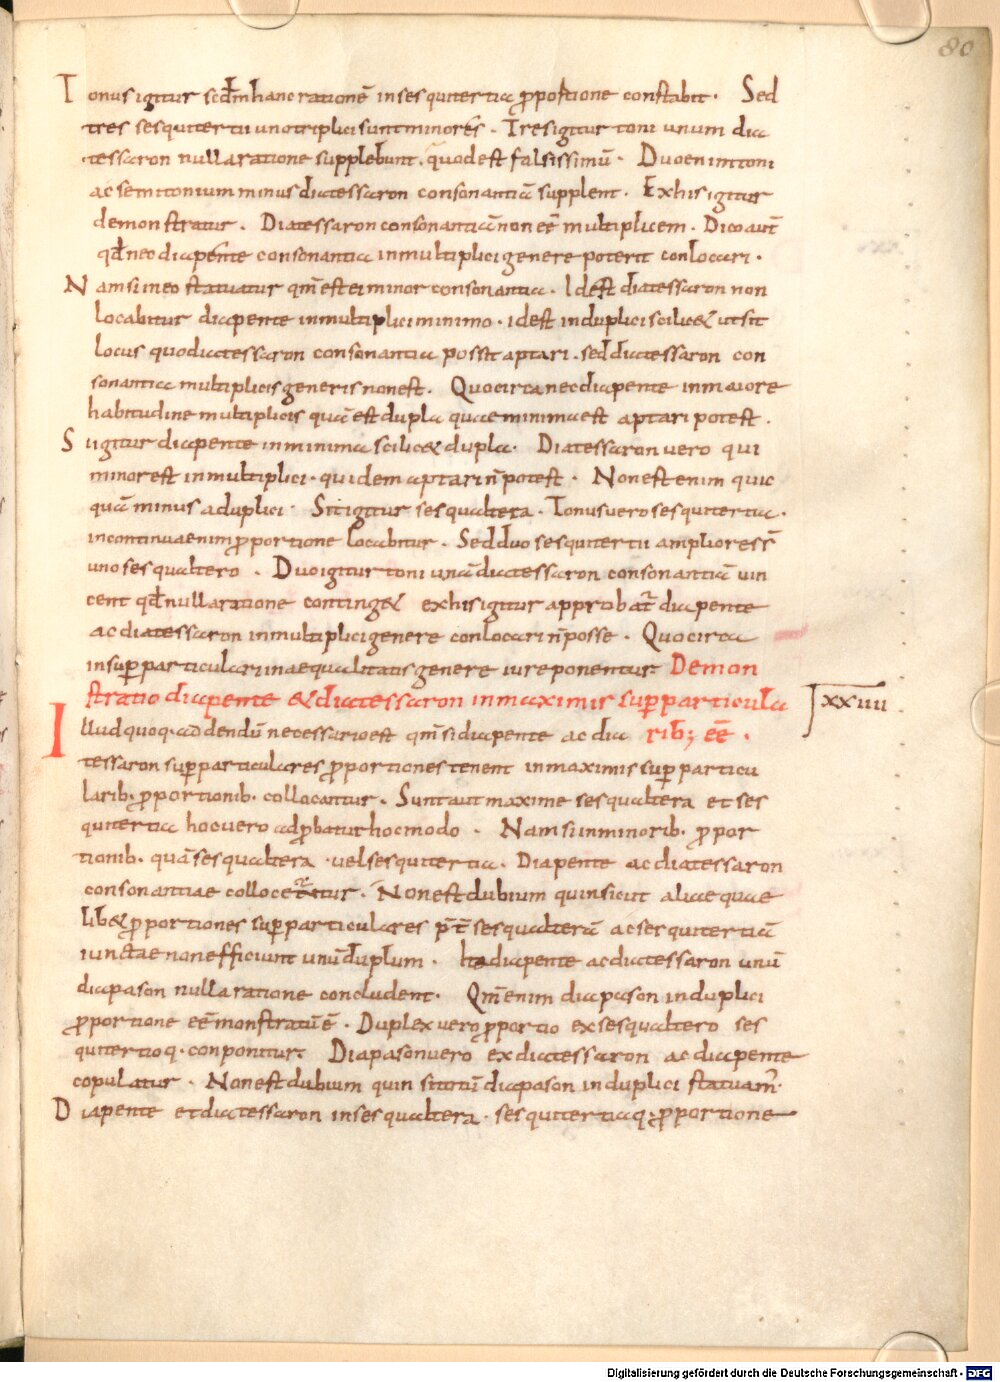 80
Tonus igitur scdm hanc rationē in sesquitertia ꝓportione constabit. Sed
tres sesquitertii uno triplici sunt minores. Tres igitur toni unum dia
tessaron nulla ratione supplebunt. quod est falsissimū. Duo enim toni
ac semitonium minus diatessaron consonantiā supplent. Ex his igitur
demonstratur. Diatessaron consonantiā non eē multiplicem. Dico aut̄
qđ nec diapente consonantia in multiplici genere poterit conlocari.
Nam si in eo statuatur qm̄ est ei minor consonantia. Id est diatessaron non
locabitur diapente in multiplici minimo. id est in duplici scilic& ut sit
locus quo diatessaron consonantia possit aptari. sed diatessaron con
sonantia multiplicis generis non est. Quocirca nec diapente in maiore
habitudine multiplicis quā est dupla quae minima est aptari potest.
Si igitur diapente in minima scilic& dupla. Diatessaron vero qui
minor est in multiplici. quidem aptari n̄ potest. Non est enim quic
quā minus a duplici. Sit igitur sesqualtera. Tonus uero sesquitertia.
in continua enim ꝓportione locabitur. Sed duo sesquitertii ampliores s̄
uno sesqualtero. Duo igitur toni unā diatessaron consonantiā uin
cent qđ nulla ratione conting& ex his igitur approbat̄ diapente
ac diatessaron in multiplici genere conlocari n̄ posse. Quocirca
in suꝑparticulari inaequalitatis genere iure ponentur. Demon
stratio diapente & diatessaron in maximis suꝑparticula
Ꞁxxiiii
Illud quoq. addendū necessario est qm̄ si diapente ac dia rib; eē.
tessaron suꝑparticulares ꝓportiones tenent in maximis suꝑparticu
larib. ꝓportionib. collocantur. Sunt aut maxime sesqualtera et ses
quitertia hoc uero adꝓbatur hoc modo. Nam si in minorib. ꝓpor
tionib. quā sesqualtera. uel sesquitertia. Diapente ac diatessaron
consonantiae collocentur. Non est dubium quin sicut aliae quae
lib& ꝓportiones suꝑparticulares p̄t̄ sesqualterā ac sesquitertiā
iunctae non efficiunt unū duplum. Ita diapente ac diatessaron unū
diapason nulla ratione concludent. Qm̄ enim diapason in duplici
ꝓportione eē monstratū ē. Duplex vero ꝓportio ex sesqualtero ses
quitertioq. conponitur. Diapason vero ex diatessaron ac diapente
copulatur. Non est dubium quin si totū diapason in duplici statuam̄.
Diapente et diatessaron in sesqualtera. sesquitertiaq. ꝓportione
Digitalisierung gefördert durch die Deutsche Forschungsgemeinschaft - DFG